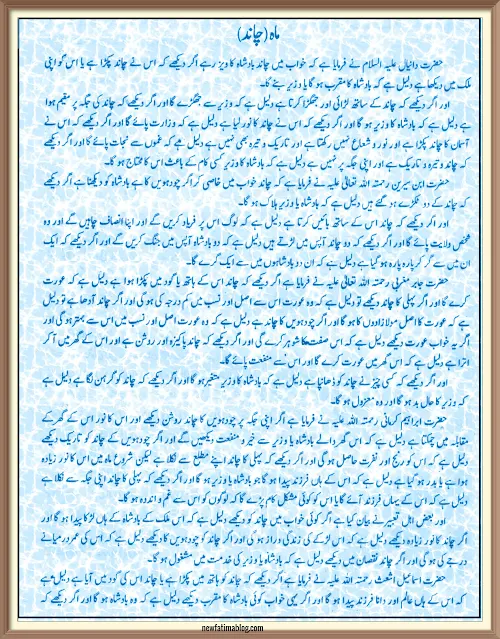 ماہ (چاند)
حضرت دانیال علیہ السلام نے فرمایا ہے کہ خواب میں چاند بادشاہ کا وزیر ہے اگر دیکھے کہ اس نے چاند پکڑا ہے یا اس کو اپنی
ملک میں دیکھا ہے دلیل ہے کہ بادشاہ کا مقرب ہو گا یا وزیر بنے گا۔
اور اگر دیکھے کہ چاند کے ساتھ لڑائی اور جھگڑا کرتا ہے دلیل ہے کہ وزیر سے جھگڑے گا اور اگر دیکھے کہ چاند کی جگہ پر مقیم ہوا
ہے دلیل ہے کہ بادشاہ کا وزیر ہو گا اور اگر دیکھے کہ اس نے چاند کا نور لیا ہے دلیل ہے کہ وزارت پائے گا اور اگر دیکھے کہ اس نے
آسمان کا چاند پکڑا ہے اور نور و شعاع نہیں رکھتا ہے اور تاریک و تیرہ بھی نہیں ہے دلیل ہے کہ غموں سے نجات پائے گا اور اگر دیکھے
کہ چاند و تیرہ و تاریک ہے اور اپنی جگہ پر نہیں ہے دلیل ہے کہ بادشاہ کا وزیر کسی کام کے باعث اس کا محتاج ہو گا۔
حضرت ابن سیرین رحمتہ اللہ تعالیٰ علیہ نے فرمایا ہے کہ چاند خواب میں خاص کر اگر چودہویں کا ہے بادشاہ کو دیکھنا ہے اگر دیکھے
کہ چاند کے دو ٹکڑے ہو گئے ہیں دلیل ہے کہ بادشاہ یا وزیر ہلاک ہو گا۔
اور اگر دیکھے کہ چاند اس کے ساتھ باتیں کرتا ہے دلیل ہے کہ لوگ اس پر فریاد کریں گے اور اپنا انصاف چاہیں گے اور وہ
شخص ولایت پائے گا اور اگر دیکھے کہ دو چاند آپس میں لڑتے ہیں دلیل ہے کہ دو بادشاہ آپس میں جنگ کریں گے اور اگر دیکھے کہ ایک
ان میں سے گر کر پارہ پارہ ہو گیا ہے دلیل ہے کہ ان دو بادشاہوں میں سے ایک گرے گا۔
حضرت جابر مغربی رحمتہ اللہ تعالیٰ علیہ نے فرمایا ہے اگر دیکھے کہ چاند کو ہاتھ یا گود میں پکڑا ہوا ہے دلیل ہے کہ عورت
کرے گا اور اگر پہلی کا چاند دیکھے تو دلیل ہے کہ وہ عورت اس سے اصل اور نسب میں کم درجہ کی ہو گی اور اگر چاند آدھا ہے تو دلیل
ہے کہ عورت کا اصل مولا زادوں کا ہو گا اور اگر چودہویں کا چاند ہے دلیل ہے کہ وہ عورت اصل اور نسب میں اس سے بہتر ہو گی اور
اگر یہ خواب عورت دیکھے دلیل ہے کہ اس صفت کا شوہر کرے گی اور اگر دیکھے کہ چاند پاکیزہ اور روشن ہے اور اس کے گھر میں آ کر
اترا ہے دلیل ہے کہ اس گھر میں عورت کرے گا اور اس سے منفعت پائے گا۔
اور اگر دیکھے کہ کسی چیز نے چاند کو ڈھانپا ہے دلیل ہے کہ بادشاہ کا وزیر متغیر ہو گا اور اگر دیکھے کہ چاند کو گرہن لگا ہے دلیل ہے
کہ وزیر کا حال بد ہو گا اور وہ معزول ہو گا۔
حضرت ابراہیم کرمانی رحمتہ اللہ علیہ نے فرمایا ہے اگر اپنی جگہ پر چودہویں کا چاند روشن دیکھے اور اس کا نور اس کے گھر کے
مقابلہ میں چمکتا ہے دلیل ہے کہ اس گھر والے بادشاہ یا وزیر سے خیر و منفعت دیکھیں گے اور اگر چودہویں کے چاند کو تاریک دیکھے
دلیل ہے کہ اس کو رنج اور نفرت حاصل ہو گی اور اگر دیکھے کہ پہلی کا چاند اپنے مطلع سے نکلا ہے لیکن شروع ماہ میں اس کا نور زیادہ
ہوا ہے یا بدر ہو گیا ہے دلیل ہے کہ اس کے ہاں فرزند پیدا ہو گا جو بادشاہ یا وزیر ہو گا اور اگر دیکھے کہ پہلی کا چاند اپنی جگہ سے نکلا ہے
دلیل ہے کہ اس کے یہاں فرزند آئے گا یا اس کو کوئی مشکل کام پڑے گا کہ لوگوں کو اس سے غم و اندوہ ہو گا۔
اور بعض اہل تعبیر نے بیان کیا ہے اگر کوئی خواب میں چاند کو دیکھے دلیل ہے کہ اس ملک کے بادشاہ کے ہاں لڑکا پیدا ہو گا اور
اگر چاند کا نور زیادہ دیکھے دلیل ہے کہ اس لڑکے کی زندگی دراز ہو گی اور اگر چاند کو چودہویں کا دیکھے دلیل ہے کہ اس کی عمر درمیانے
درجے کی ہو گی اور اگر چاند نقصان میں دیکھے دلیل ہے کہ بادشاہ یا وزیر کی خدمت میں مشغول ہو گا۔
حضرت اسماعیل اشعث رحمتہ اللہ علیہ نے فرمایا ہے اگر دیکھے کہ چاند کو ہاتھ میں پکڑا ہے یا چاند اس کی گود میں آیا ہے دلیل ہے
کہ اس کے ہاں عالم اور دانا فرزند پیدا ہو گا اور اگر یہی خواب کوئی بادشاہ کا مقرب دیکھے دلیل ہے کہ وہ بادشاہ ہو گا اور اگر دیکھے کہ
newfatimablog.com